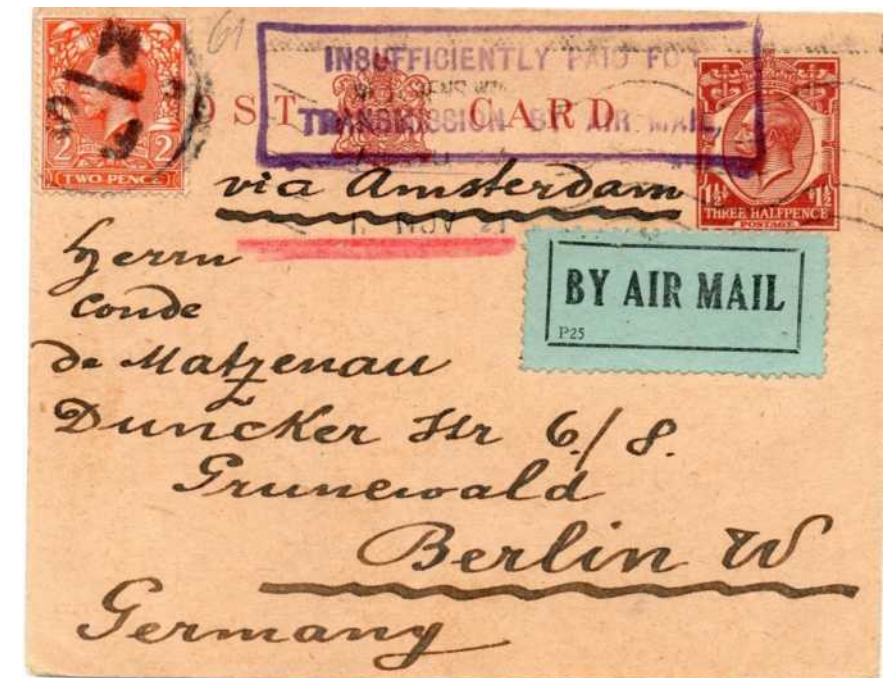 61
INSUFFICIENTLY PAID FOR
TRANSMISSION BY AIR MAIL,
POST CARD
2 2
TWO PENCE
1½ 1½
THREE HALFPENCE
POSTAGE
via Amsterdam
NOV
BY AIR MAIL
P25
Herrn
Conde
de Matzenau
Duncker Str 6/8.
Grunewald
Berlin W
Germany